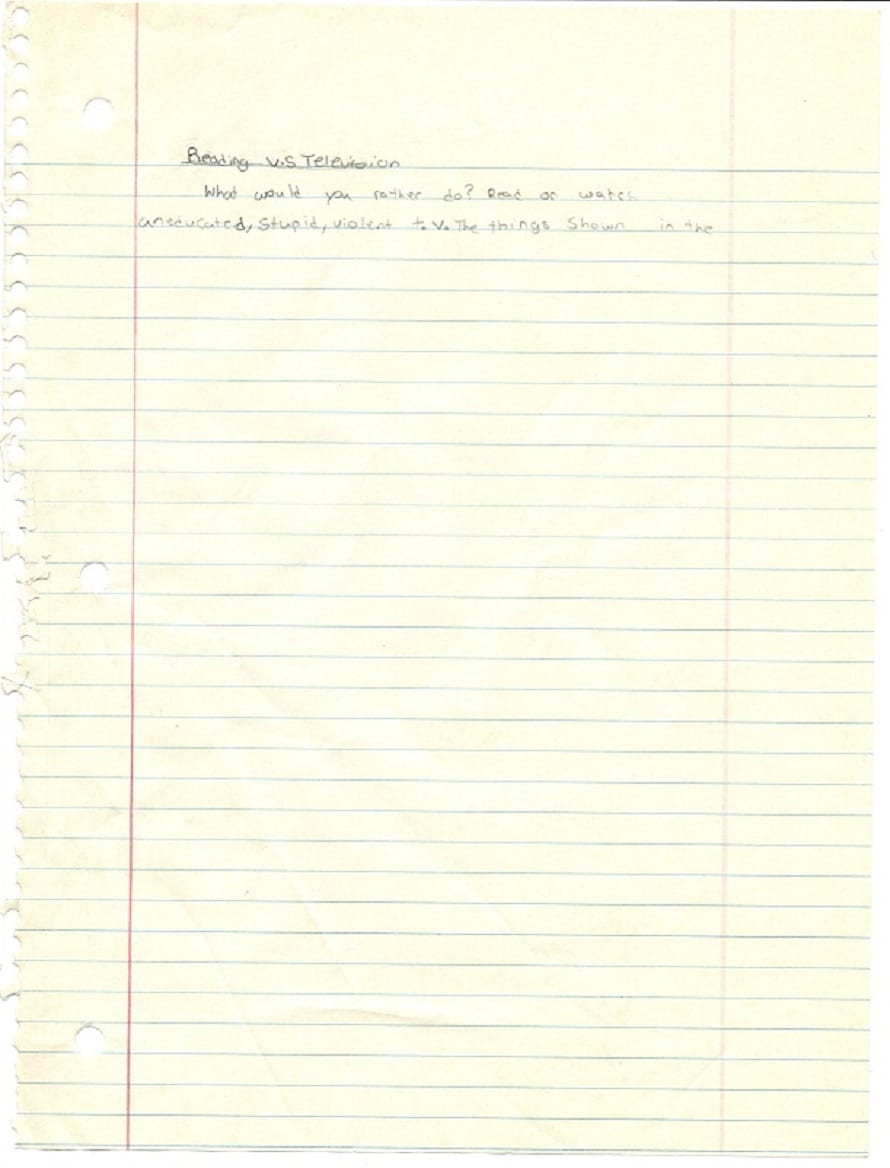 Reading v.s Television
What would you rather do? Read or watch
anseucated, Stupid, violent t.v. The things Shown in the